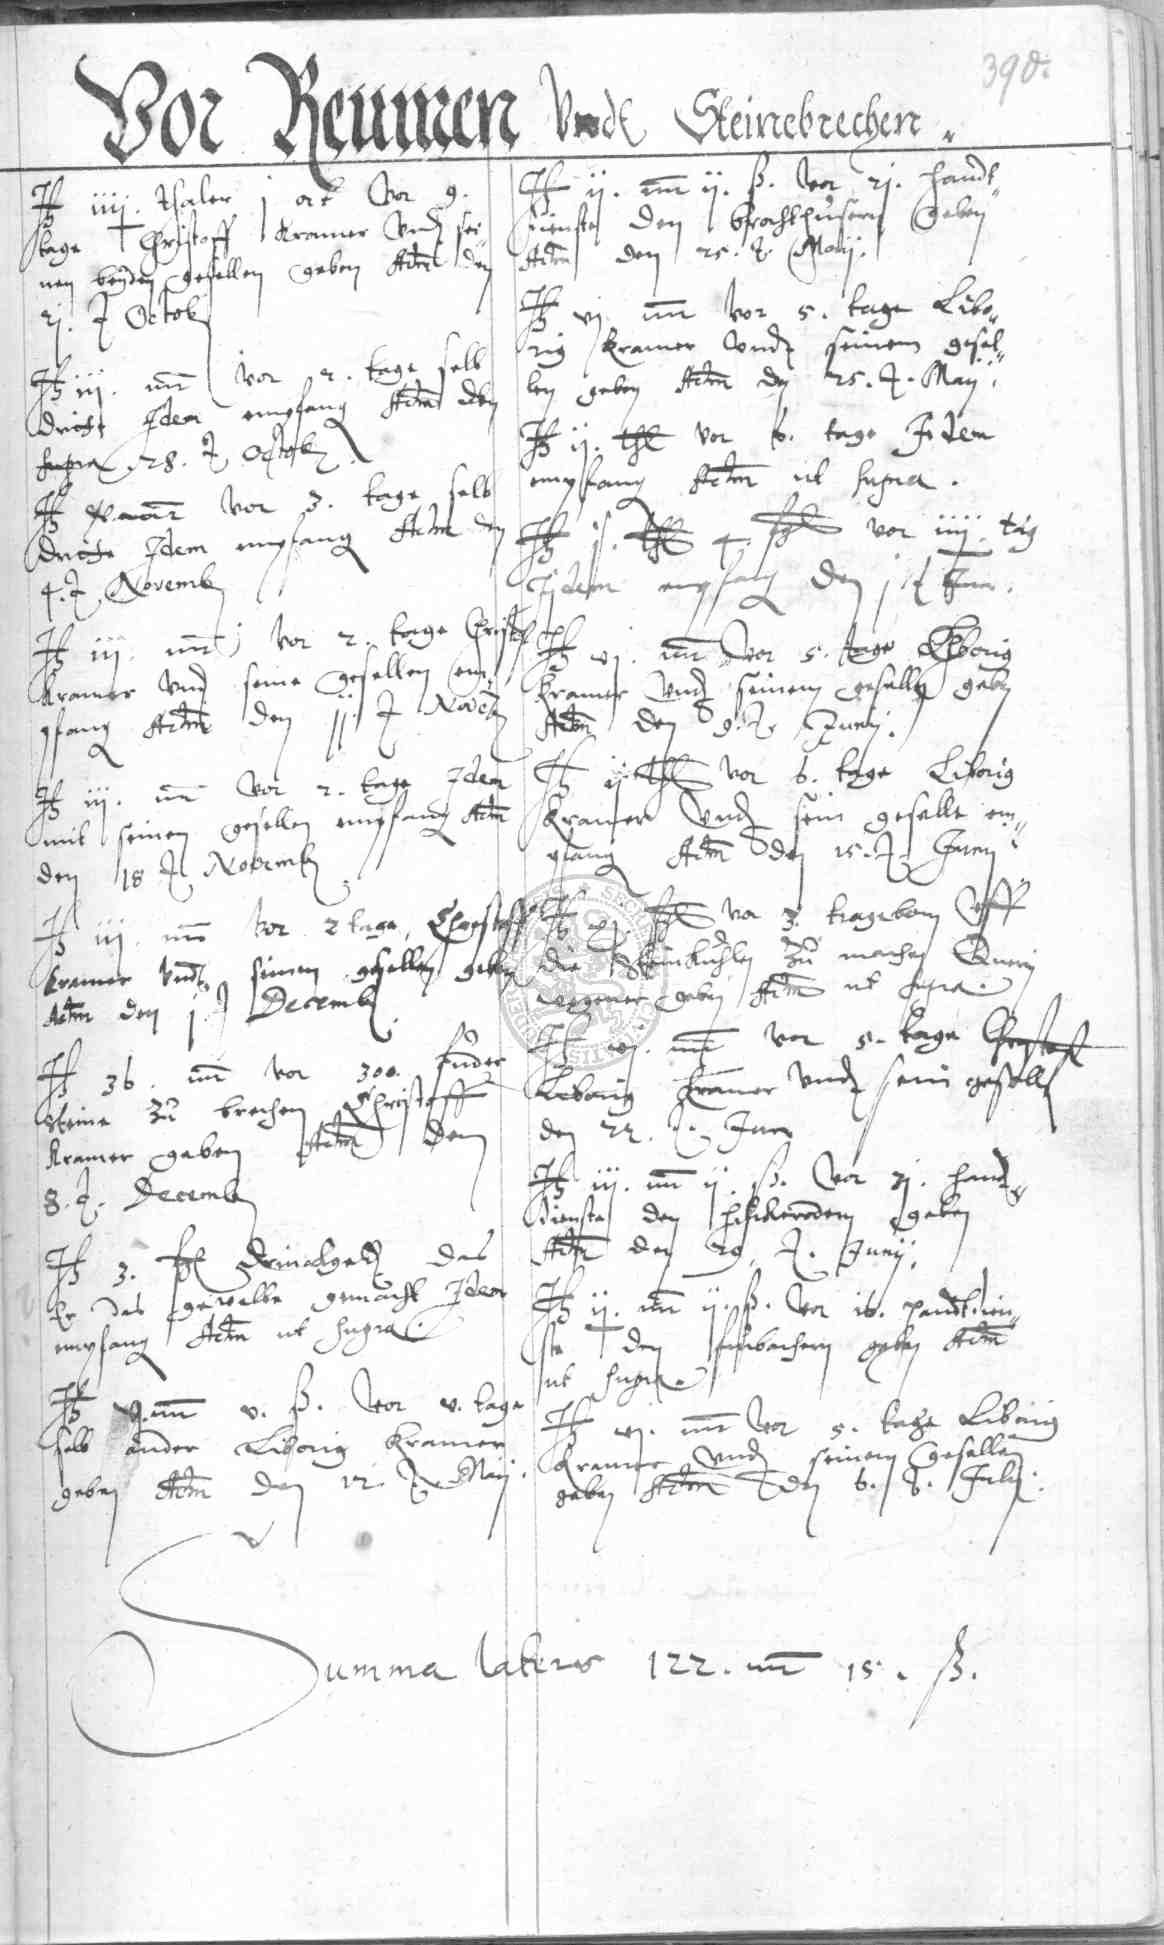 390.
Vor Reumen Vndt Steinebrechen
It iiij. thaler j ort Vor 9.
tage Christoff Kramer Vnd sei
nen beyden gesellen geben Actum den
21. Octob
It iij. mr vor 2. tage selb
dritte Idem empfang Actum den
supra 28. Octob
It vor 3. tage selb
dritte Idem empfang Actum den
4. Novemb
It iij. mr vor 2. tage Christoff
Kramer Vnd seine gesellen em
pfang Actum den 11 Novem
It iij. mr vor 2. tage Idem
mit seinen gesellen empfang Actum
den 18 Novemb
It iij. mr vor 2 tage, Christoff
Kramer Vndt seinen gesellen geben
Actum den j Decemb
It 36. mr vor 300. fuder
steine zu brechen Christoff
Kramer geben Actum den
8. Decemb
It 3. drinckgeld das
Er das gewelbe gemacht Idem
empfang Actum ut supra.
It mr v. ß. vor v. tage
selb ander Liborig Kramer
geben Actum den 12 Maij.
It ij. mr ij. ß. vor 21. handt
dienste den geben
Actum den 25. Maij.
It vj mr vor 5. tage Libo
rig Kramer Vnd seinem gesel
len geben Actum den 25. Maij
It ij. thl vor 6. tage Idem
empfang Actum ut supra.
It thl 4. vor iiij. tag
Idem empfang den j Juni.
It vj. mr vor 5. tage Liborig
Kramer Vnd seinem gesellen geben
Actum den 9. Junij.
It ij thl vor 6. tage Liborig
Kramer Vnd sein geselle em
pfang Actum den 15. Junij
It vor 3. tragebom Vff
die Steinkuhlen zu machen
Wegener geben Actum ut supra.
It vj. mr vor 5. tage Christoff
Liborig Kramer Vnd sein gesell
den 22. Juny
It iij. mr ij. ß. vor 21. hand
dienste den geben
Actum den 29. Junij,
It ij. mr ij. ß. vor 16. handtdien
ste den geben Actum
ut supra.
It vj. mr vor 5. tage Liborig
Kramer Vnd seinem gesellen
geben Actum den 6. July.
Summa lateris 122. mr 15. ß.